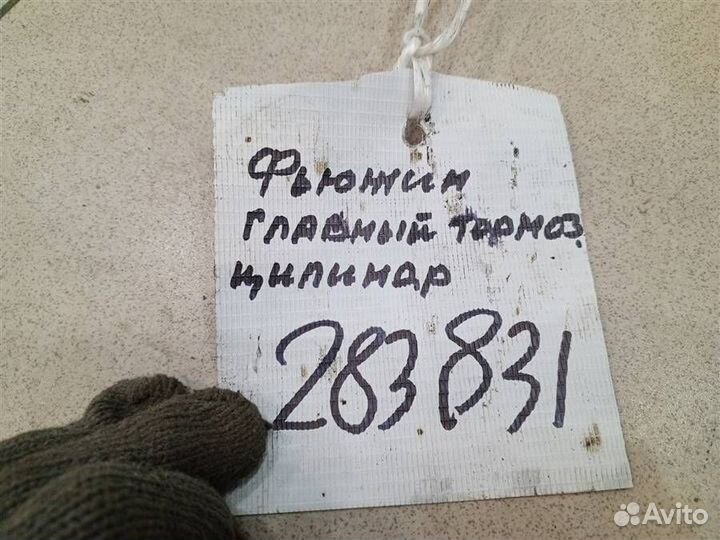 Фьюжин
главный тормоз.
цилиндр
283831
Avito